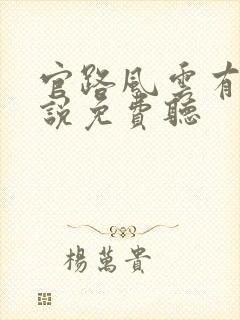 官路風雲有
說免費聽
楊萬貴